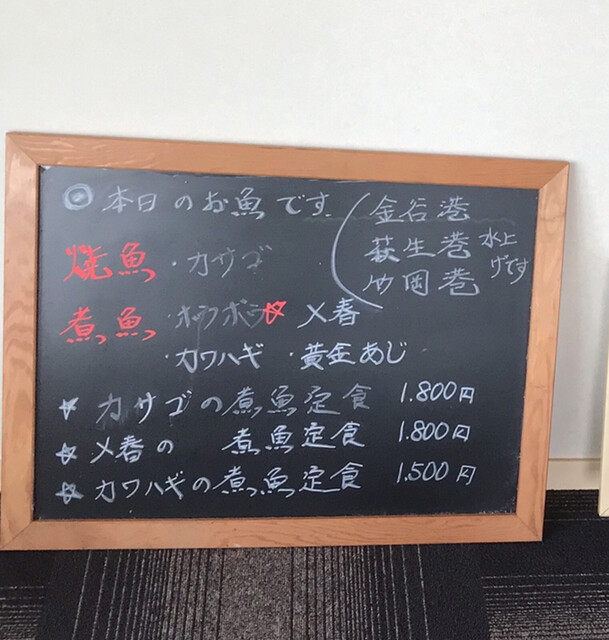 ◎本日のお魚です。
金谷港
萩生巻 水上
竹岡巻 げです
焼魚・カサゴ
煮魚・ホウボウ☆メ春
・カワハギ ・黄金あじ
☆ カサゴの煮魚定食 1.800円
☆ メ春の 煮魚定食 1.800円
☆ カワハギの煮魚定食 1.500円